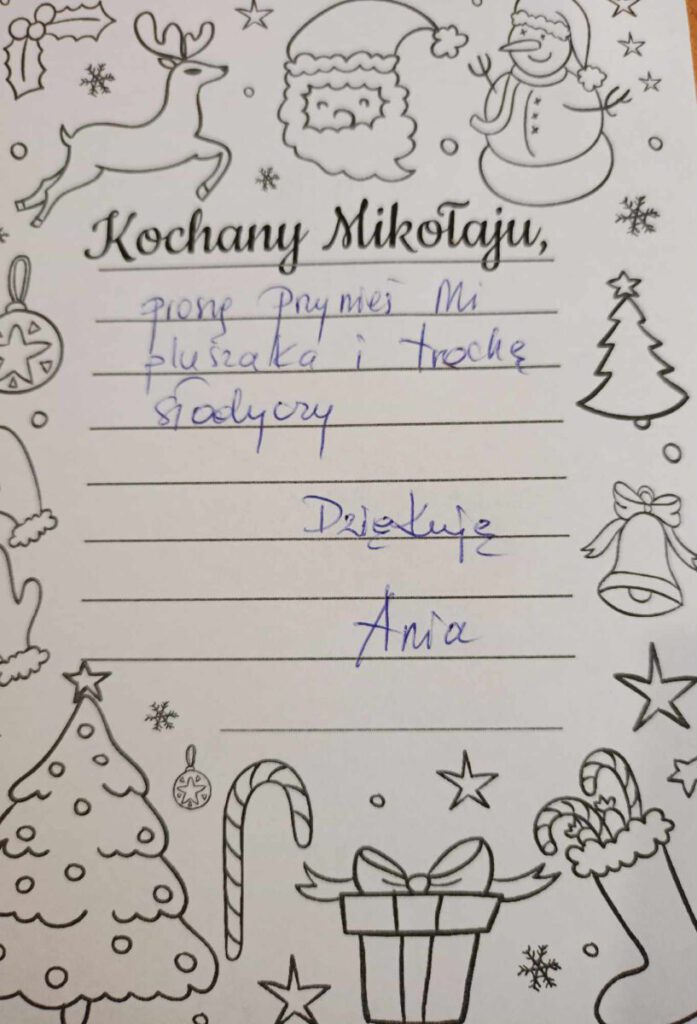 Kochany Mikołaju,
proszę przynieś Mi
pluszaka i trochę
słodyczy
Dziękuję
Ania